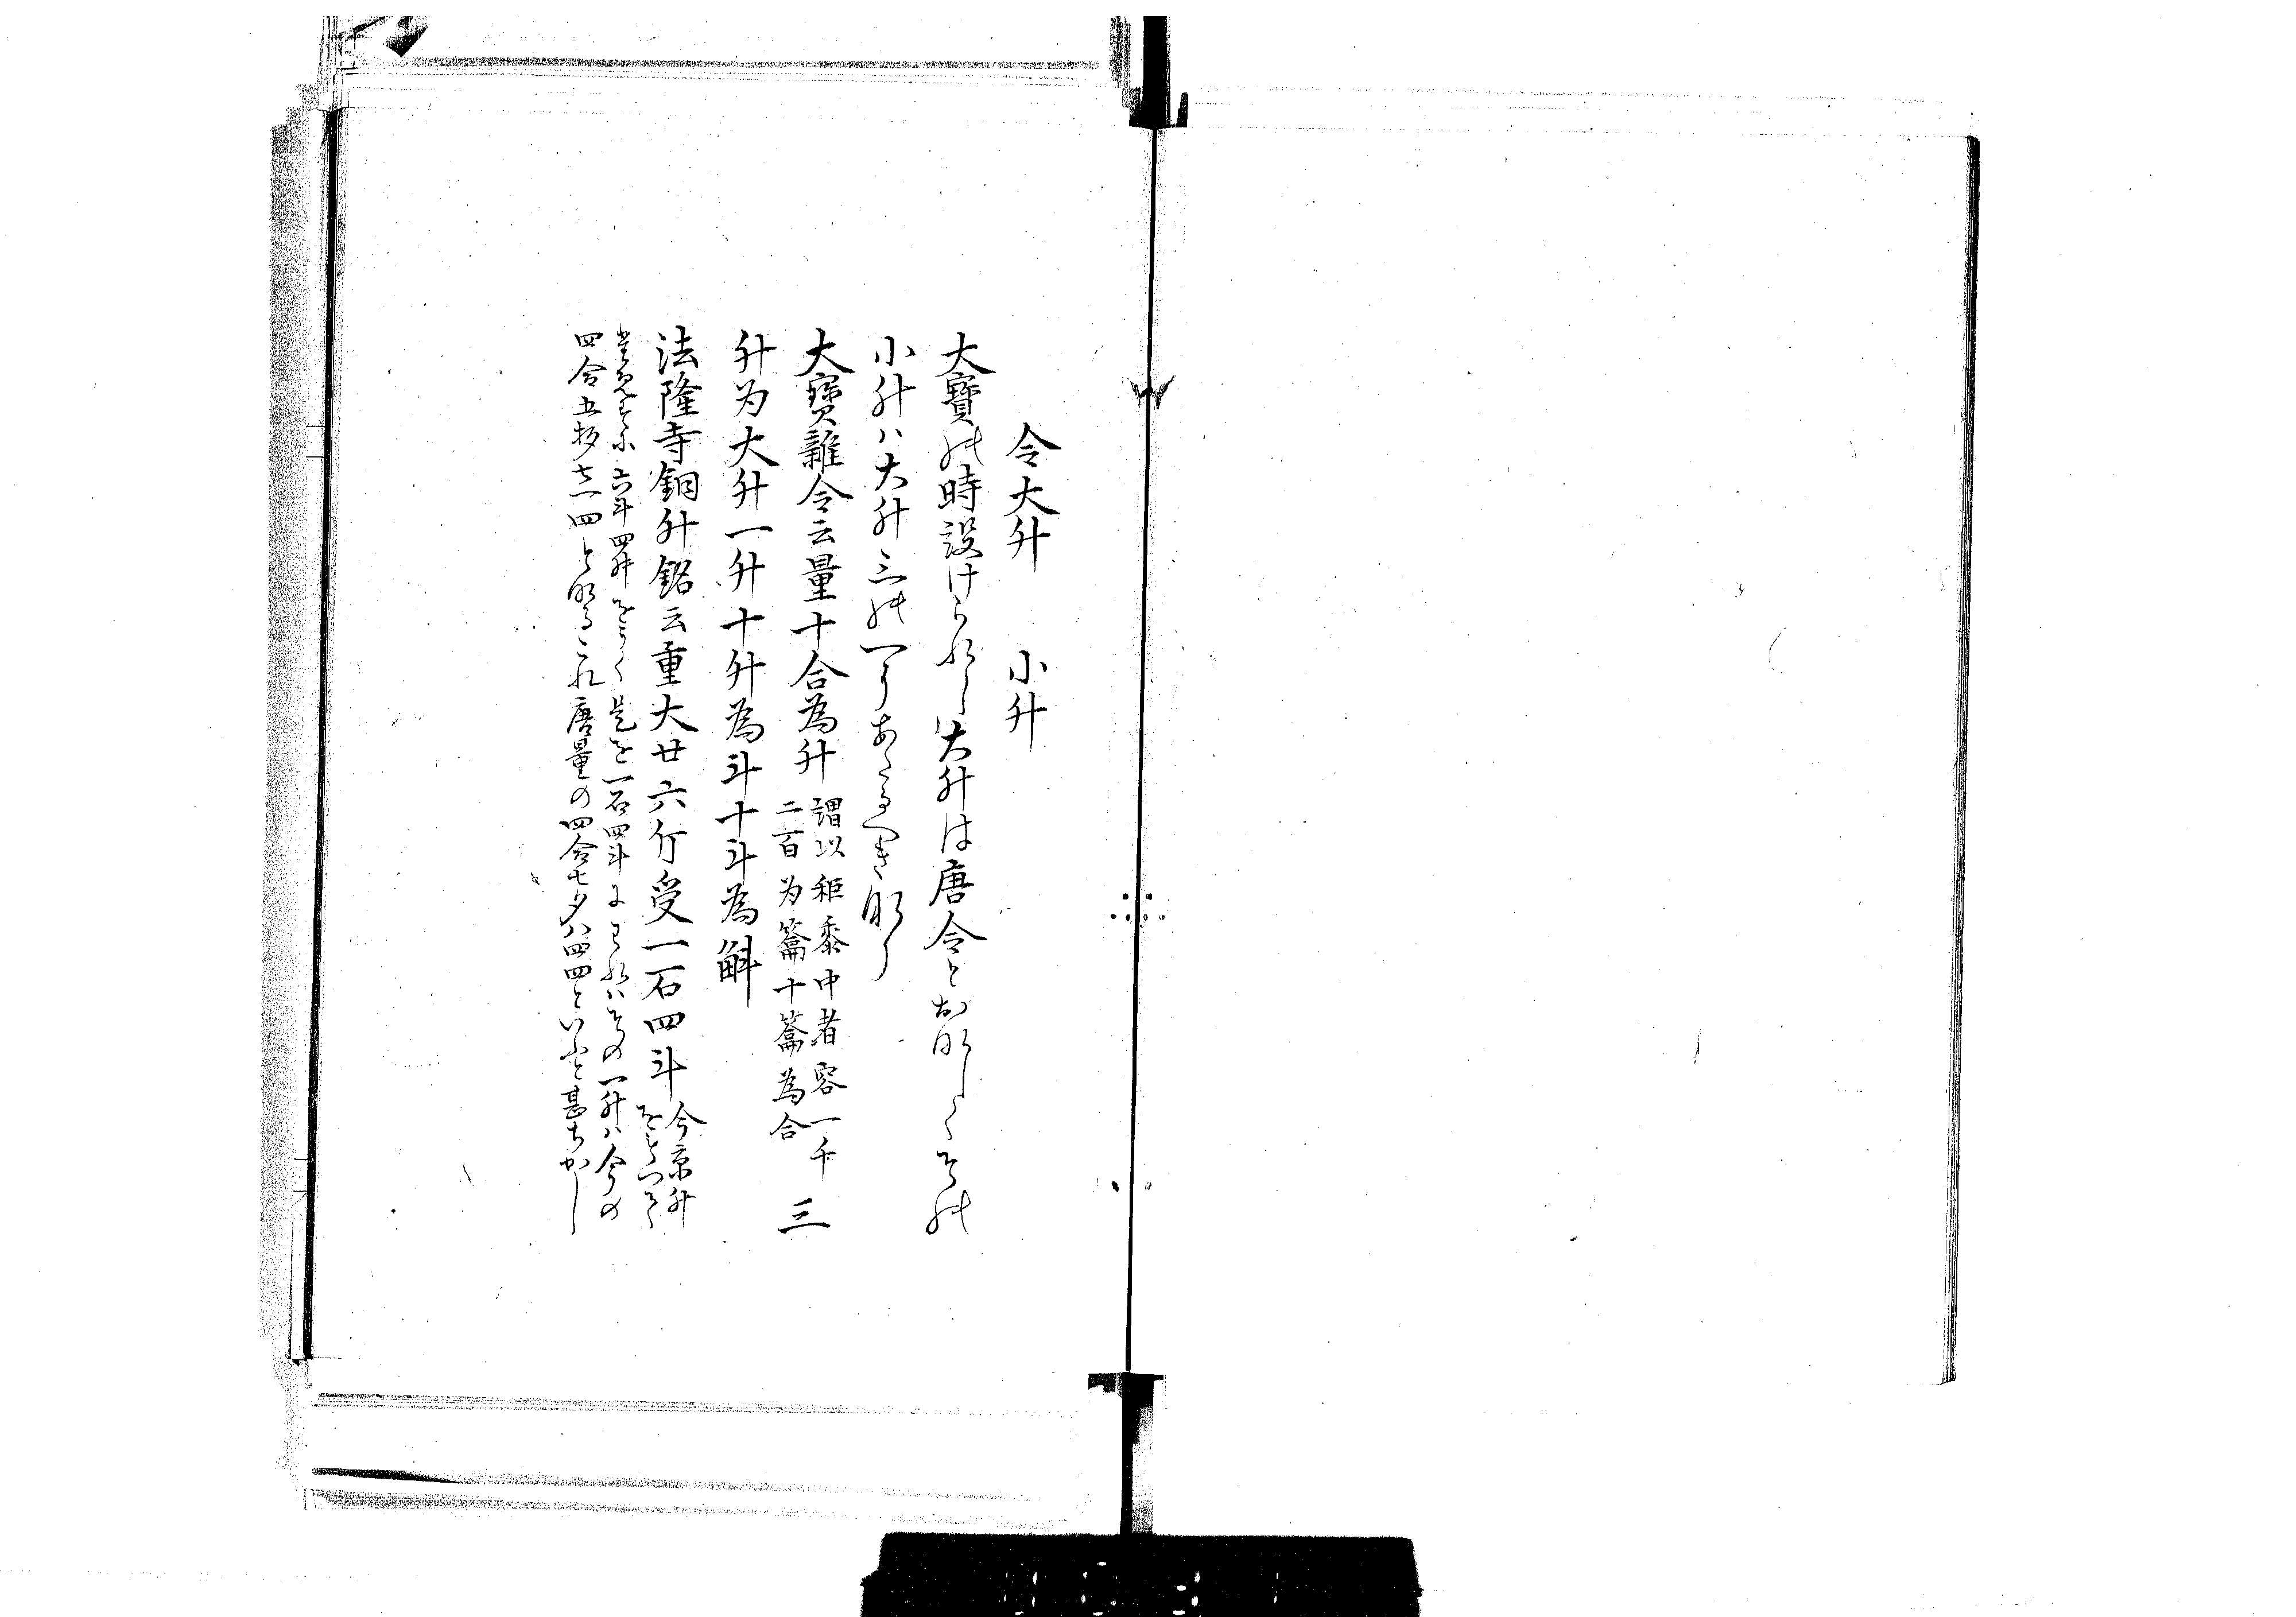 令大升　　小升
大寶の時設けられし大升は唐令とおなしくその
小升ハ大升三の一にあたるへきなり
大寶雜令云量十合為升 謂以秬黍中者容一千
二百为籥十籥為合 三
升为大升一升十升為斗十斗為斛
法隆寺銅升銘云重大廿六斤受一石四斗 今京升
をもつて
量見るに六斗四升をうく是を一石四斗にわれハその一升ハ今の
四合五勺七一四となるこれ唐量の四合七夕八四四といふと甚ちかし